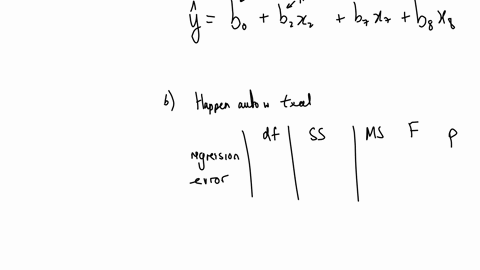 ŷ = b₀ + b₂x₂ + b₇x₇ + b₈x₈
b) Happen
df SS MS F P
regression
error